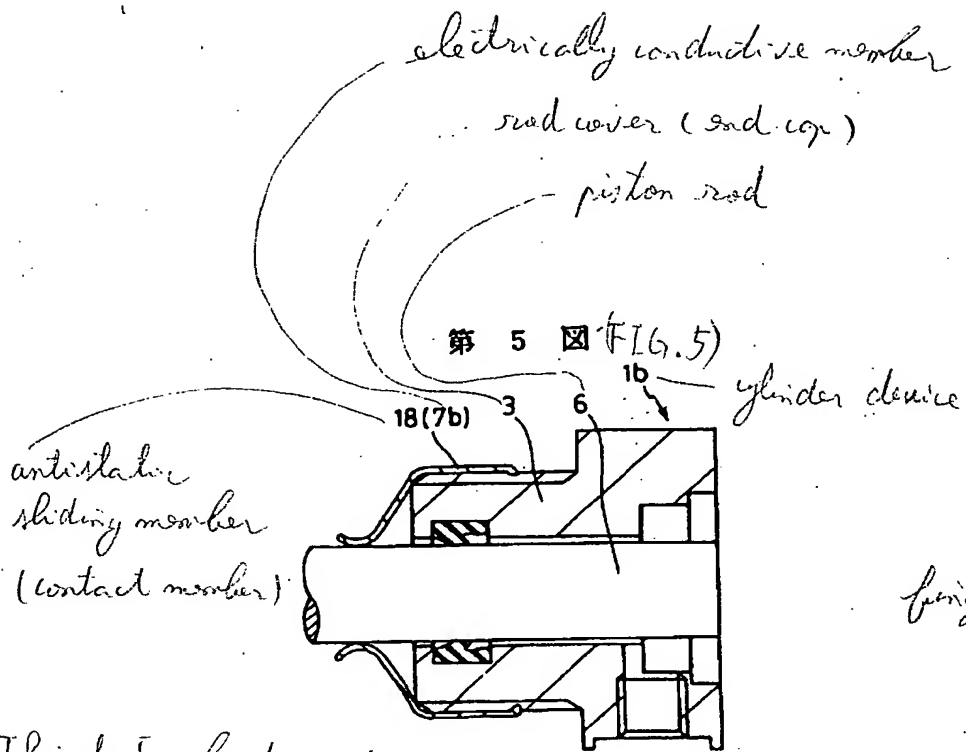 electrically conductive member
rod cover (end cap)
piston rod
第 5 図 (FIG.5)
1b
cylinder device
18(7b) 3 6
antistatic
sliding member
(contact member)